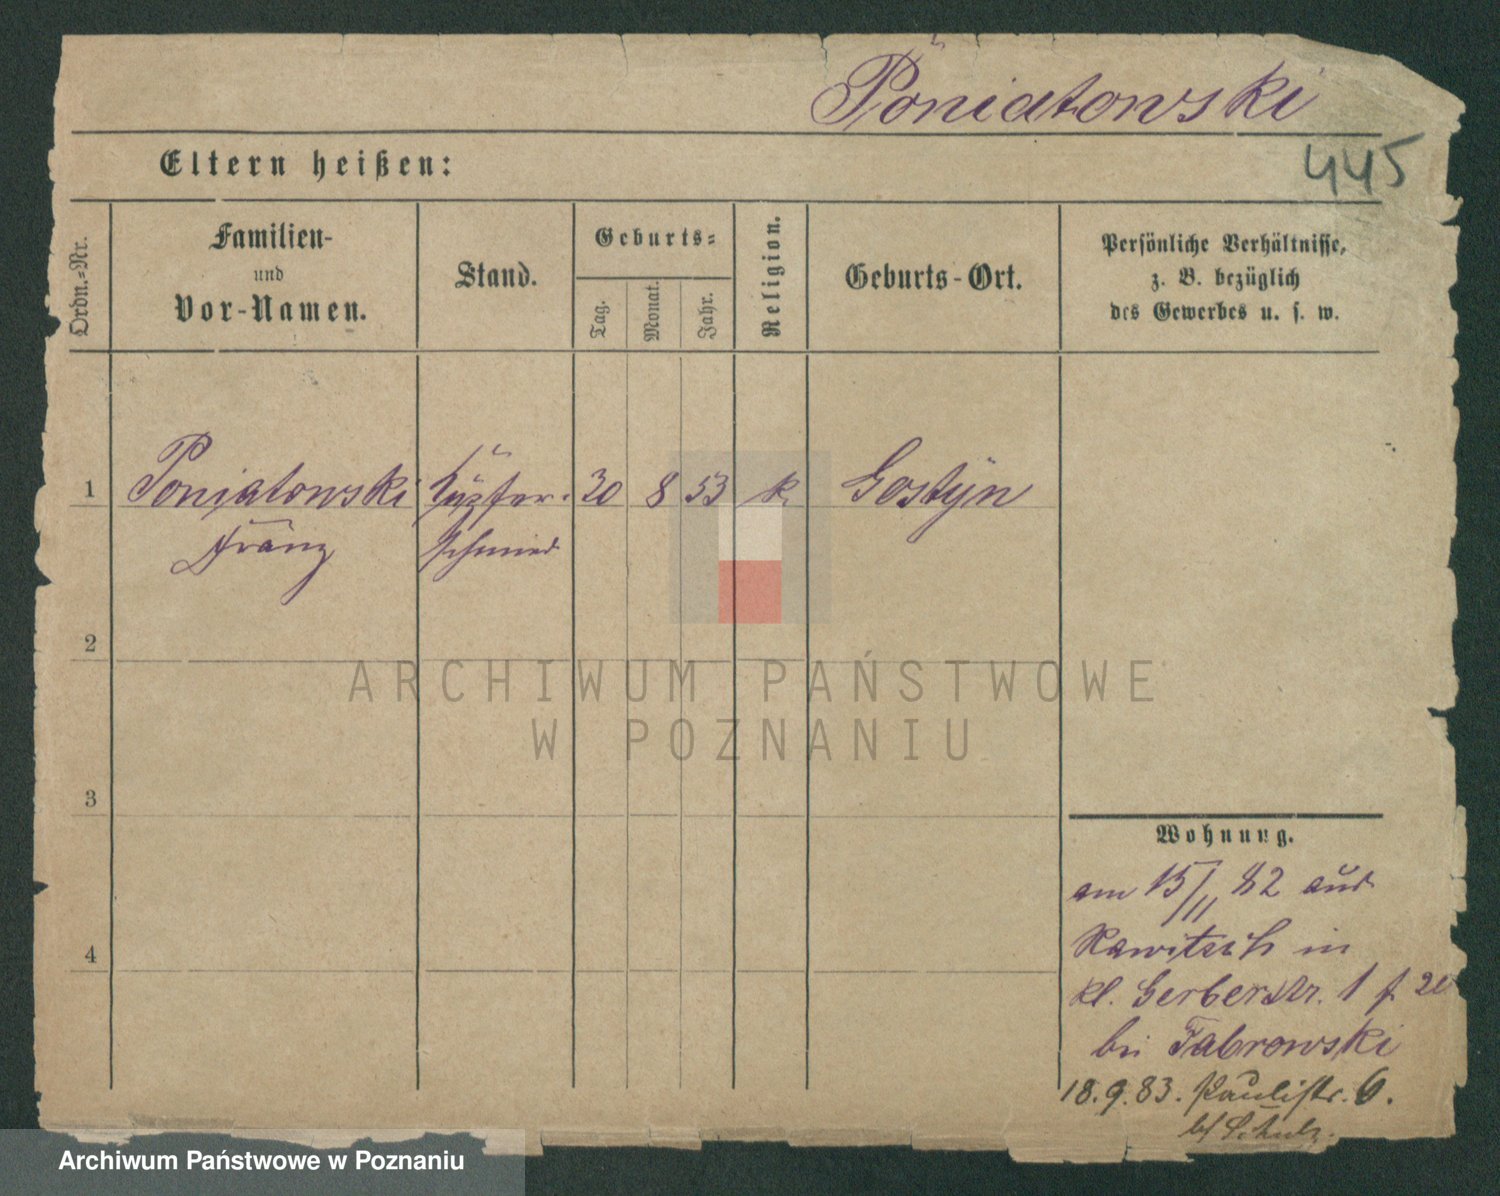 Poniatowski
445
Eltern heißen:
Ordn.-Nr.
Familien-
und
Vor-Namen.
Stand.
Geburts-
Tag.
Monat.
Jahr.
Religion.
Geburts-Ort.
Persönliche Verhältnisse,
z. B. bezüglich
des Gewerbes u. s. w.
1 Poniatowski Kupfer- 30 8 53 k. Gostyn
Franz schmied
2
3
4
Wohnung.
am 15/11 82 aus
Rawitsch in
kl. Gerberstr. 1
bei Dabrowski
18.9.83. Paulistr. 6.
b/ Schulz.
ARCHIWUM PAŃSTWOWE
W POZNANIU
Archiwum Państwowe w Poznaniu